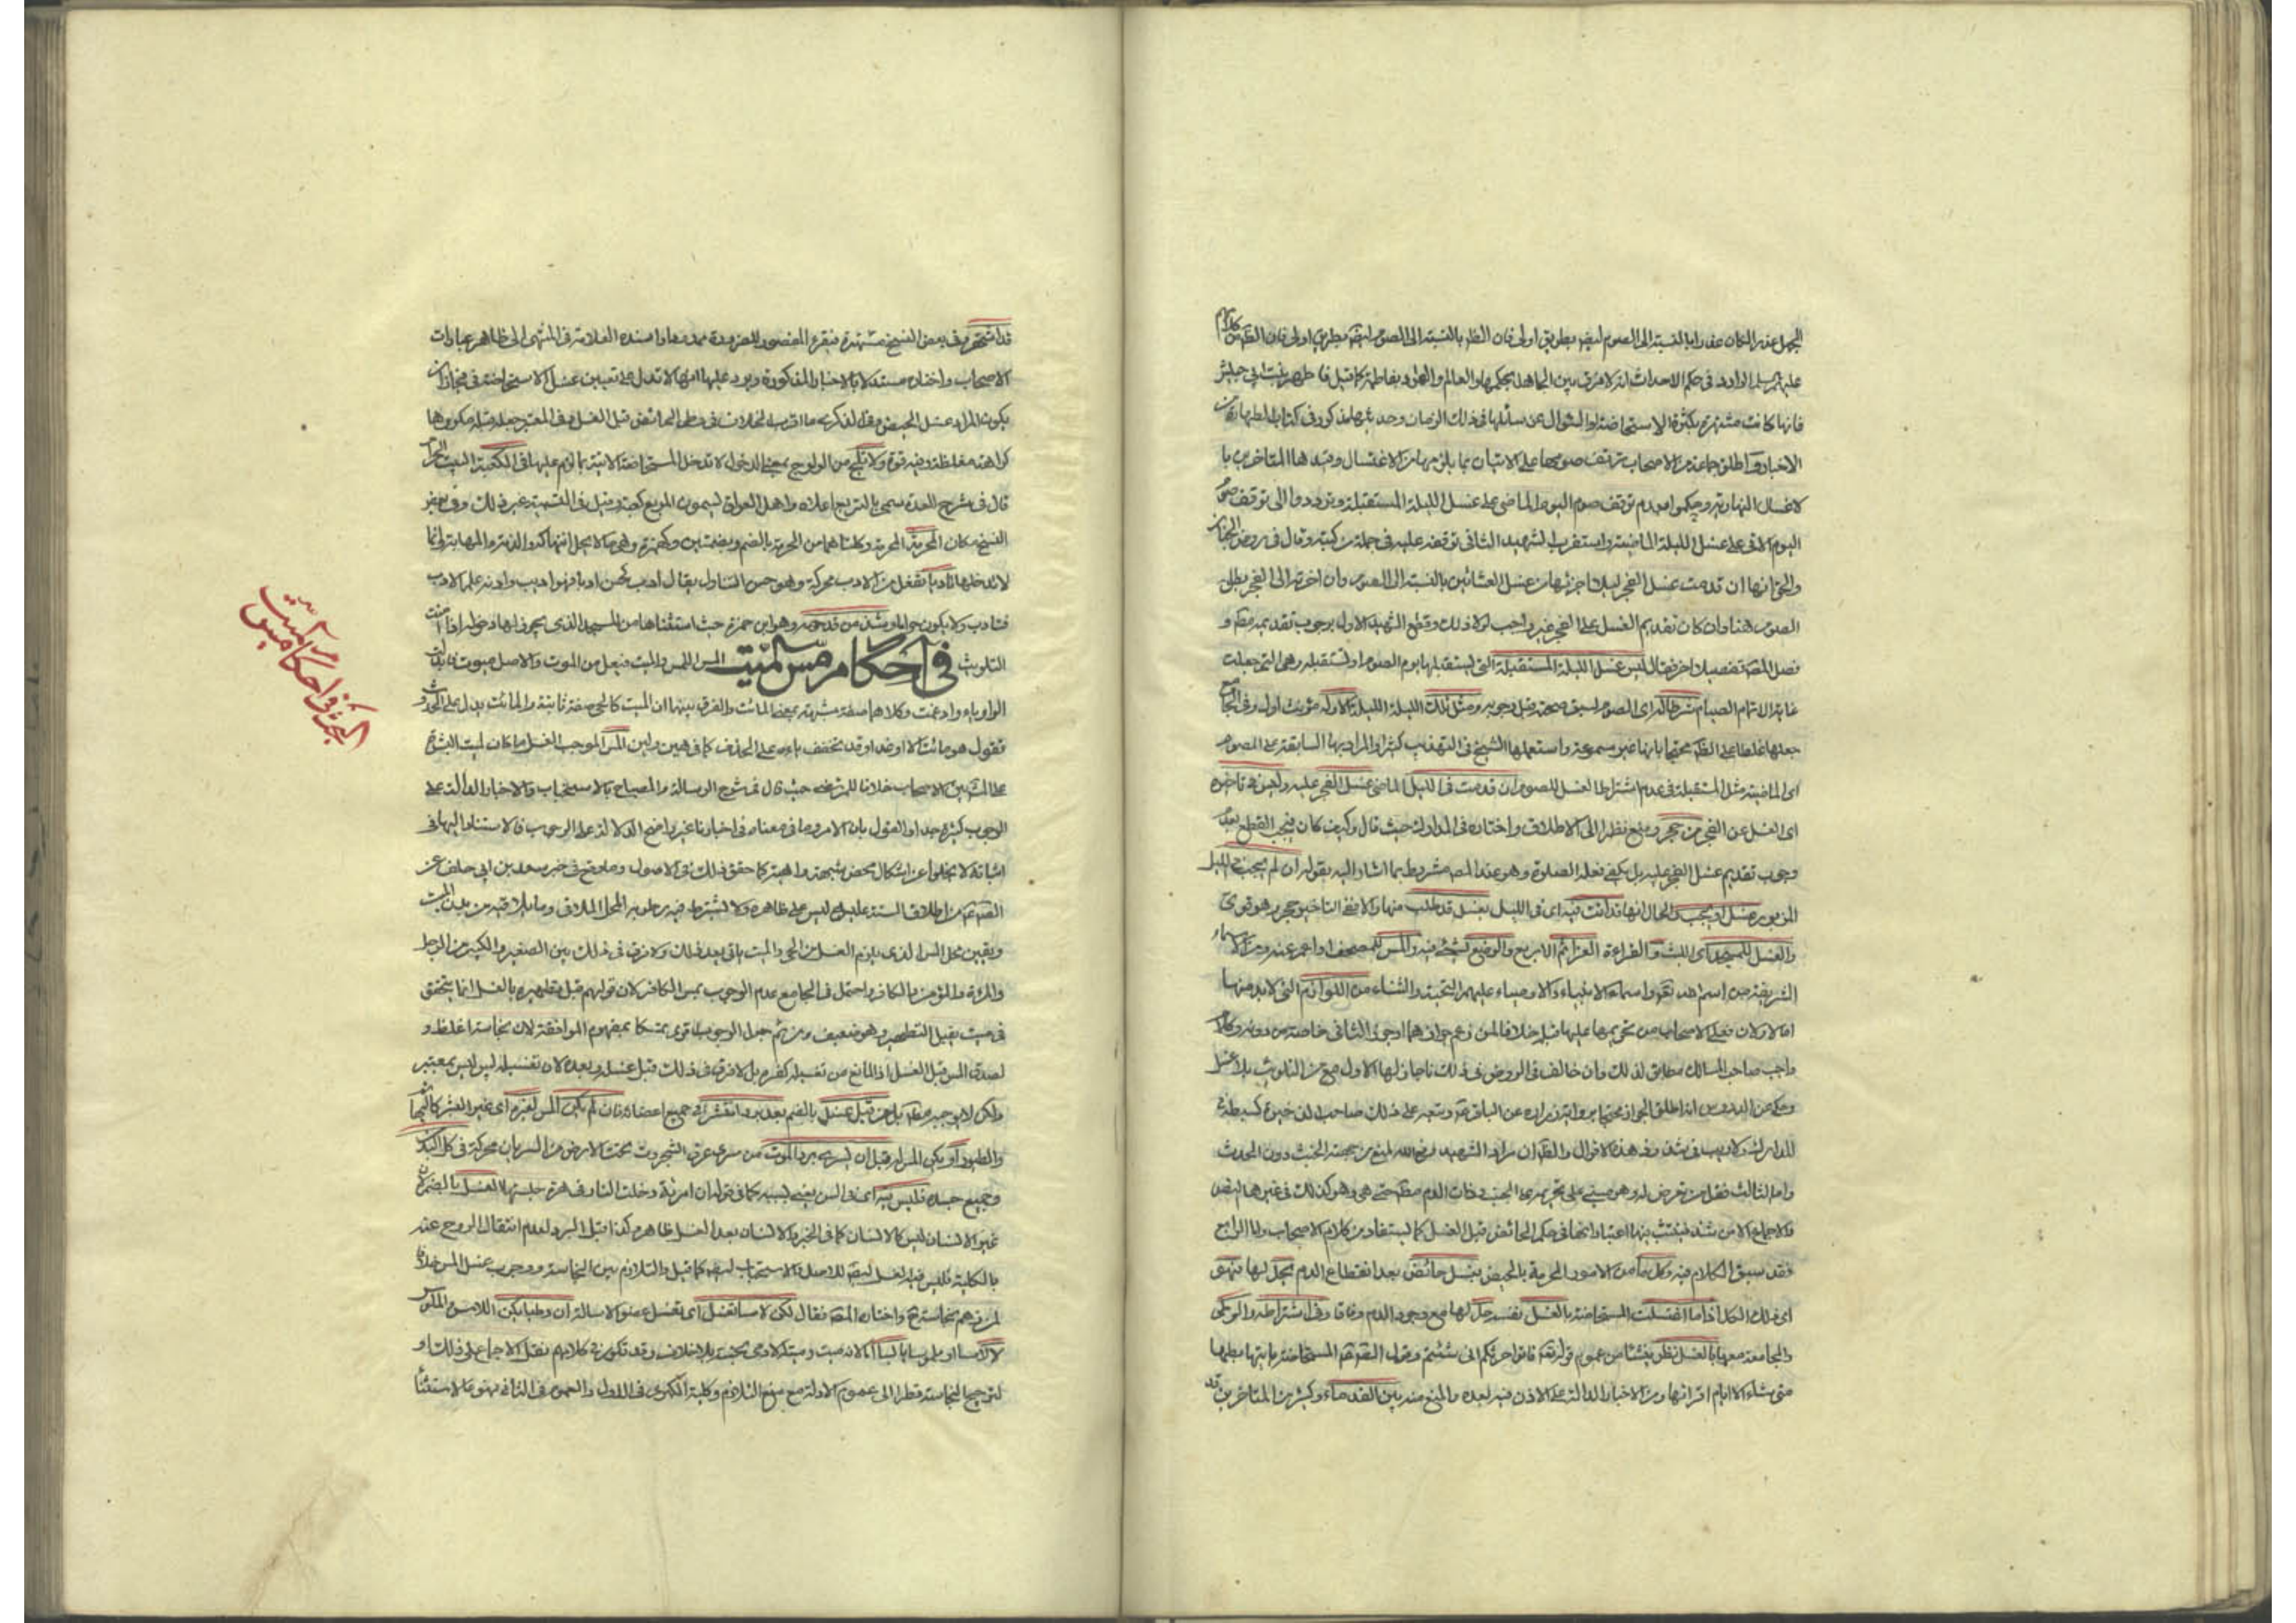 الجهل عذرا لكان عذرا بالنسبة الى الصوم ايضا بطريق اولى فان الظ بالنسبة الى الصوم ايضا بطريق اولى فان الظ من كلام
الوارد في حكم الاحداث انه لا فرق بين الجاهل بحكمها والعالم
فانها كانت مشتهرة بكثرة الاستحاضة والسؤال عن مسائلها في ذلك الزمان وحديثها مذكور في كتاب الطهارة من
الاخبار واطلق جماعة من الاصحاب توقف صومها على الاتيان بما يلزمها من الاغتسال وقيدها المتاخرون با
لاغسال النهارية وحكموا بعدم توقف صوم اليوم الماضي على غسل الليلة المستقبلة وترددوا الى توقف صوم
اليوم الاتي على غسل الليلة الماضية واستقرب الشهيد الثاني توقفه عليه في جملة من كتبه وقال في روض الجنان
والحق انها ان قدمت غسل الفجر ليلا اجزئها عن غسل العشائين بالنسبة الى الصوم وان اخرته الى الفجر بطل
الصوم هنا وان كان تقديم الغسل على الفجر غير واجب لولا ذلك وقطع الشهيد الاول بوجوب تقديمه مطلقا و
فصل المص تفصيلا اخر فقال ليس غسل الليلة المستقبلة التي يستقبلها يوم الصوم او تستقبله وهي التي جعلت
غاية لاتمام الصيام شرطا له اى الصوم لسبق صحته قبل وجوبه ومثل تلك الليلة الليلة الاولة مؤنث اول وفي
جعلها غلطا محتجا بانها غير مسموعة واستعملها الشيخ في التهذيب كثيرا والمراد بها السابقة على الصوم
اى الماضية مثل المستقبلة في عدم اشتراط الغسل للصوم ان قدمت في الليل الماضي غسل الفجر عليه وليس في تاخيره
اى الغسل عن الفجر من حجر ومنع نظرا الى الاطلاق واختاره في المدارك حيث قال وكيف كان فيجب القطع بعدم
وجوب تقديم غسل الفجر عليه بل يكفي فعله للصلوة وهو عند المص مشروط بما اشار اليه بقوله ان لم يجب في الليل
المزبور غسل او يجب والحال انها قد اتت فيه اى في الليل بغسل قد طلب منها والا ففي التاخير حجر وهو قوي
والغسل للمسجد اى اللبث والقراءة العزائم الاربع والوضع لشيء فيه والمس للمصحف او اعم عنه ومن الاسماء
الشريفة من اسم الله تعالى واسماء الانبياء والاوصياء عليهم التحية والثناء من اللوازم التي لابد منها
اما الاولان فعلى الاصحاب من تحريمها عليها قبله خلافا لمن زعم جوازهما او جوز الثاني خاصة من دونه وكلام
صاحب المسالك مطابق لذلك وان خالف في الروض في ذلك فاجاز لها الاول مع امن التلويث بلا غسل
وحكي عن الدروس انه اطلق الجواز محتجا برواية زرارة عن الباقر وتبعه على ذلك صاحب الذخيرة كسبطه في
المدارك ولا ريب في شذوذ هذه الاقوال والظ ان مراد الشهيد رفع الله المنع من جهة الخبث دون الحدث
واما الثالث فقل من تعرض له وهو مبني على تحريمه على الجنب وذات الدم مطلقا حتى هي وهو كذلك في غيرها للنص
والاجماع الا من شذ فيثبت فيها اعتبارا لاتحادها في حكم الحائض قبل الغسل كما يستفاد من كلام الاصحاب واما الرابع
فقد سبق الكلام فيه وكل ما من الامور المحرمة بالحيض بغسل حائض بعد انقطاع الدم يحل لها فهو
اى ذلك الكل اذا ما اغتسلت المستحاضة بالغسل نفسه حل لها مع وجود الدم وفاقا وفي اشتراط الوطي
والمجامعة معها بالغسل نظر ينشئا من عموم قوله تعالى فاتوا حرثكم انى شئتم وقول المستحاضة ياتيها بعلها
متى شاء الا ايام اقرائها ومن الاخبار الدالة على الاذن فيه بعده والمنع منه بين القدماء وكثير من المتاخرين قد
قد اشتهر وفي بعض النسخ مشتهرة فيقرء المقصور للضرورة ممدودها واسنده العلامة في المنتهى الى ظاهر عبارات
الاصحاب واختاره مستدلا بالاخبار المذكورة ويرد عليها انها لا تدل على تعيين غسل الاستحاضة فيجوز ان
يكون المراد غسل الحيض وقال في الذكرى ما اقرب الخلاف في وطى الحائض قبل الغسل وفي المعتبر جعله مثله مكروها
كراهة مغلظة وفيه قوة ولا تلج من الولوج بمعنى الدخول لا تدخل المستحاضة الاتية بما لزم عليها في الكعبة البيت الحرام
قال في شرح العمدة سمي بالتربيع اعلاه واهل العراق يسمون المربع كعبة وقيل في التسمية غير ذلك وفي بعض
النسخ مكان الحرمة المحرمة وكلتاهما من الحرمة بالضم وبضمتين وكهمزة وهي ما لا يحل انتهاكه والذمة والمهابة وانما
لا تدخلها تادبا تفعل من الادب محركة وهو حسن التناول يقال ادب كحسن ادبا فهو اديب وادبه علمه الادب
فتادب ولا يكون حراما ويشذ من قد حظره وهو ابن حمزة حيث استثناها من المسجد الذي يجوز لها دخوله اذا امنت
التلويث في احكام مس الميت المس اللمس والميت فيعل من الموت والاصل ميوت فابدلت
الواو ياء وادغمت وكلاهما صفة مشبهة بمعنى المائت والفرق بينهما ان الميت كالحي صفة ثابتة والمائت يدل على الحدوث
تقول هو مائت الان وغدا وقد تخفف ياءه على الحذف كما في هين ولين المس الموجب الغسل ما كان لميت البشر
على المش بين الاصحاب خلافا للمرتضى حيث قال في شرح الرسالة والمصباح بالاستحباب والاخبار الدالة على
الوجوب كثيرة جدا والقول بان الامر وما في معناه في اخبارنا غير واضح الدلالة على الوجوب فالاستناد اليها في
اثباته لا يخلوا عن اشكال محض شبهة واهية كما حقق ذلك في الاصول وما وقع في خبر سعد بن ابى خلف عن
الص من اطلاق السنة عليه ليس على ظاهره ولا يشترط فيه رطوبة المحل الملاقي وما يلاقيه من بدن الميت
ويقين محل المس الذي يلزم الغسل من الحي والميت ياتي بعد ذلك ولا فرق في ذلك بين الصغير والكبير من الرجل
والمرئة والمؤمن والكافر واحتمل في الجامع عدم الوجوب بمس الكافر لان قولهم قبل تطهيره بالغسل انما يتحقق
في ميت يقبل التطهير وهو ضعيف ومن ثم جعل الوجوب اقوى متمسكا بمفهوم الموافقة لان نجاسته اغلظ و
لصدق المس قبل الغسل اذ المانع من تغسيله كفره بل لا فرق في ذلك قبل غسله وبعده لان تغسيله ليس بمعتبر
ولكن لا يوجبه مطلقا بل من قبل غسل بالضم بعد برد انتشر في جميع اعضائه فان لم يكن المس لغيره اى غير البشر كالبهائم
والطيور او يكن المس له قبل ان يسري برد الموت من سرى عرق الشجر دب تحت الارض من السريان محركة في كل البدن
وجميع جسده فليس فيه اى في المس يعني بسببه كما في قوله ان امرئة دخلت النار في هرة حبستها الغسل بالضم لان
غير الانسان ليس كالانسان كما في الخبر والانسان بعد الغسل طاهر وكذا قبل البرد لعدم انتقال الروح عنه
بالكلية فليس فيه الغسل ايضا للاصل والاستصحاب ايضا كما قيل والتلازم بين النجاسة ووجوب غسل المس خلافا
لمن زعم نجاسته ح واختاره المص فقال لكن لامسا تغسل اى تغسل عضو الامسا له ان رطبا يكن اللامس الملموس
لا لامسا او ملموسا يابسا لانه ميت وميتة الادمى نجسة بلا خلاف وقد تكرر في كلامهم نقل الاجماع على ذلك او
لترجيح النجاسة نظرا الى عموم الادلة مع منع التلازم وكلية الكبرى في الاول والعموم في الثاني فهو كالاستثناء